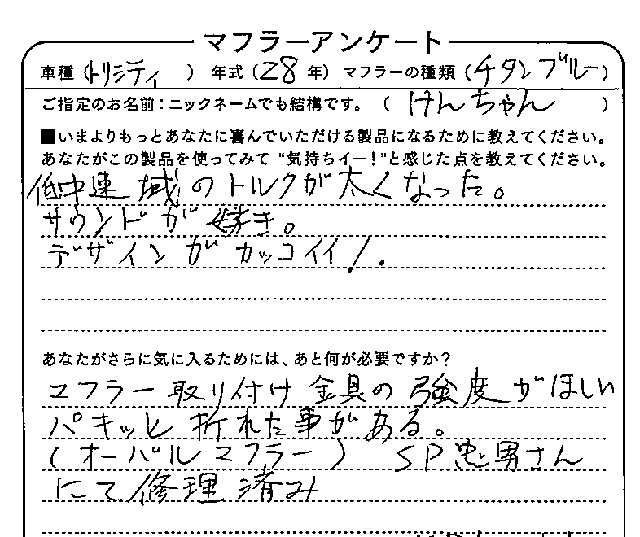 マフラーアンケート
車種（トリシティ）年式（28年）マフラーの種類（チタンブルー）
ご指定のお名前：ニックネームでも結構です。（けんちゃん）
■いまよりもっとあなたに喜んでいただける製品になるために教えてください。
あなたがこの製品を使ってみて"気持ちイー！"と感じた点を教えてください。
低中速域のトルクが太くなった。
サウンドが好き。
デザインがカッコイイ！.
あなたがさらに気に入るためには、あと何が必要ですか？
マフラー取り付け金具の強度がほしい
パキッと折れた事がある。
（オーバルマフラー） SP忠男さん
にて修理済み